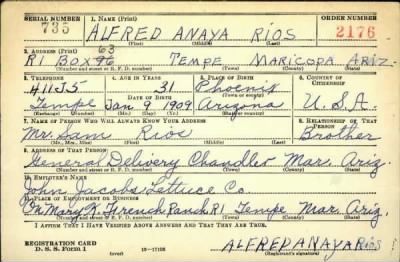 SERIAL NUMBER 1. NAME (Print) ORDER NUMBER
735 ALFRED ANAYA RIOS 2176
(First) (Middle) (Last)
2. ADDRESS (Print)
63
R1 BOX 96 TEMPE MARICOPA ARIZ.
(Number and street or R. F. D. number) (Town) (County) (State)
3. TELEPHONE 4. AGE IN YEARS 5. PLACE OF BIRTH 6. COUNTRY OF CITIZENSHIP
411J5 31 Phoenix
(Town or county)
Tempe Jan 9 1909 Arizona U.S.A.
(Exchange) (Number) (Mo.) (Day) (Yr.) (State or country)
7. NAME OF PERSON WHO WILL ALWAYS KNOW YOUR ADDRESS 8. RELATIONSHIP OF THAT PERSON
Mr. Sam Rios Brother
(Mr., Mrs., Miss) (First) (Middle) (Last)
9. ADDRESS OF THAT PERSON
General Delivery Chandler Mar. Ariz.
(Number and street or R. F. D. number) (Town) (County) (State)
10. EMPLOYER'S NAME
John Jacobs Lettuce Co.
11. PLACE OF EMPLOYMENT OR BUSINESS
On Mary K. French Ranch R1 Tempe Mar. Ariz.
(Number and street or R. F. D. number) (Town) (County) (State)
I AFFIRM THAT I HAVE VERIFIED ABOVE ANSWERS AND THAT THEY ARE TRUE.
REGISTRATION CARD
D. S. S. Form 1 (over) 16—17105 ALFRED ANAYA Rios
(Registrant's signature)